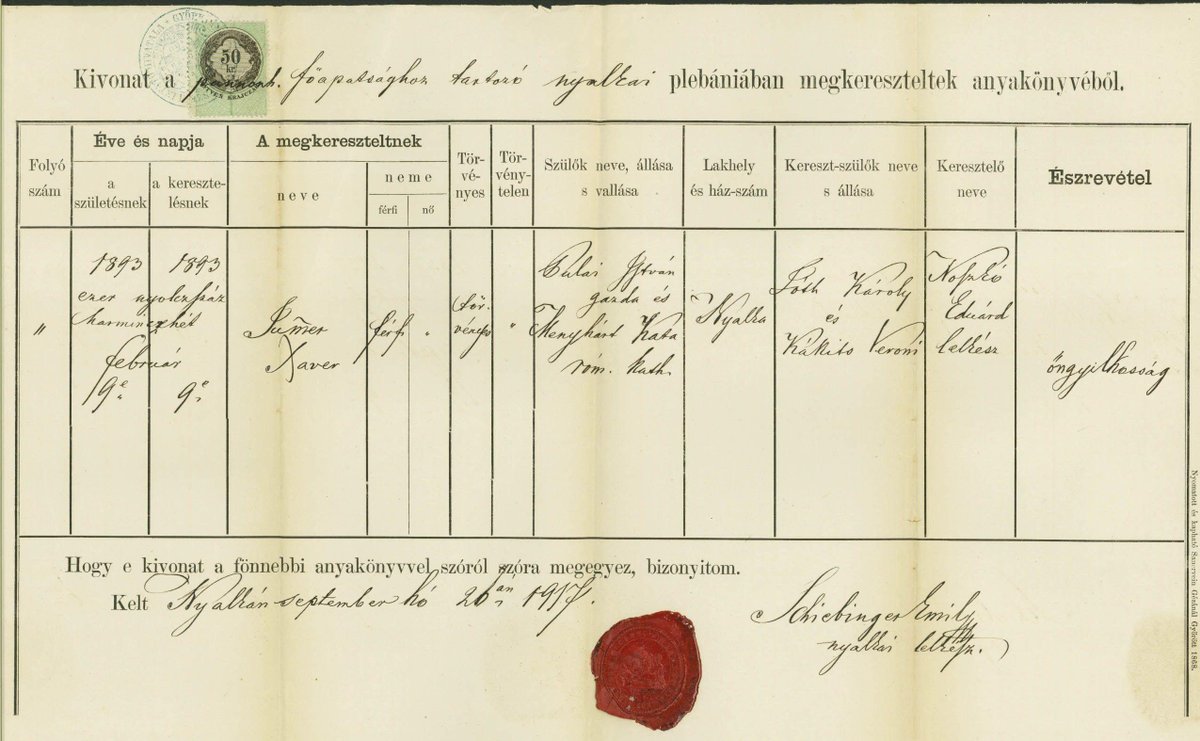 50
kr
ÖTVEN KRAJCZÁR
Kivonat a pannonh. főapatsághoz tartozó nyalkai plebániában megkereszteltek anyakönyvéből.
Folyó szám
Éve és napja
a születésnek
a keresztelésnek
A megkereszteltnek
neve
neme
férfi
nő
Törvényes
Törvénytelen
Szülők neve, állása s vallása
Lakhely és ház-szám
Kereszt-szülők neve s állása
Keresztelő neve
Észrevétel
"
1893 1893
ezer nyolczszáz
harminczhét
február
19e 9e
Xaver
férfi
"
törvényes
"
István
gazda és
Menyhárt Kata
róm. kath.
Nyalka
Tóth Károly
és
Veroni
Eduárd
lelkész
öngyilkosság
Hogy e kivonat a fönnebbi anyakönyvvel szóról szóra megegyez, bizonyitom.
Kelt Nyalkán september hó 26án 1917.
Schiebinger Emil
nyalkai lelkész.
Nyomatott és kapható Sauervein Gézánál Győrött 1868.